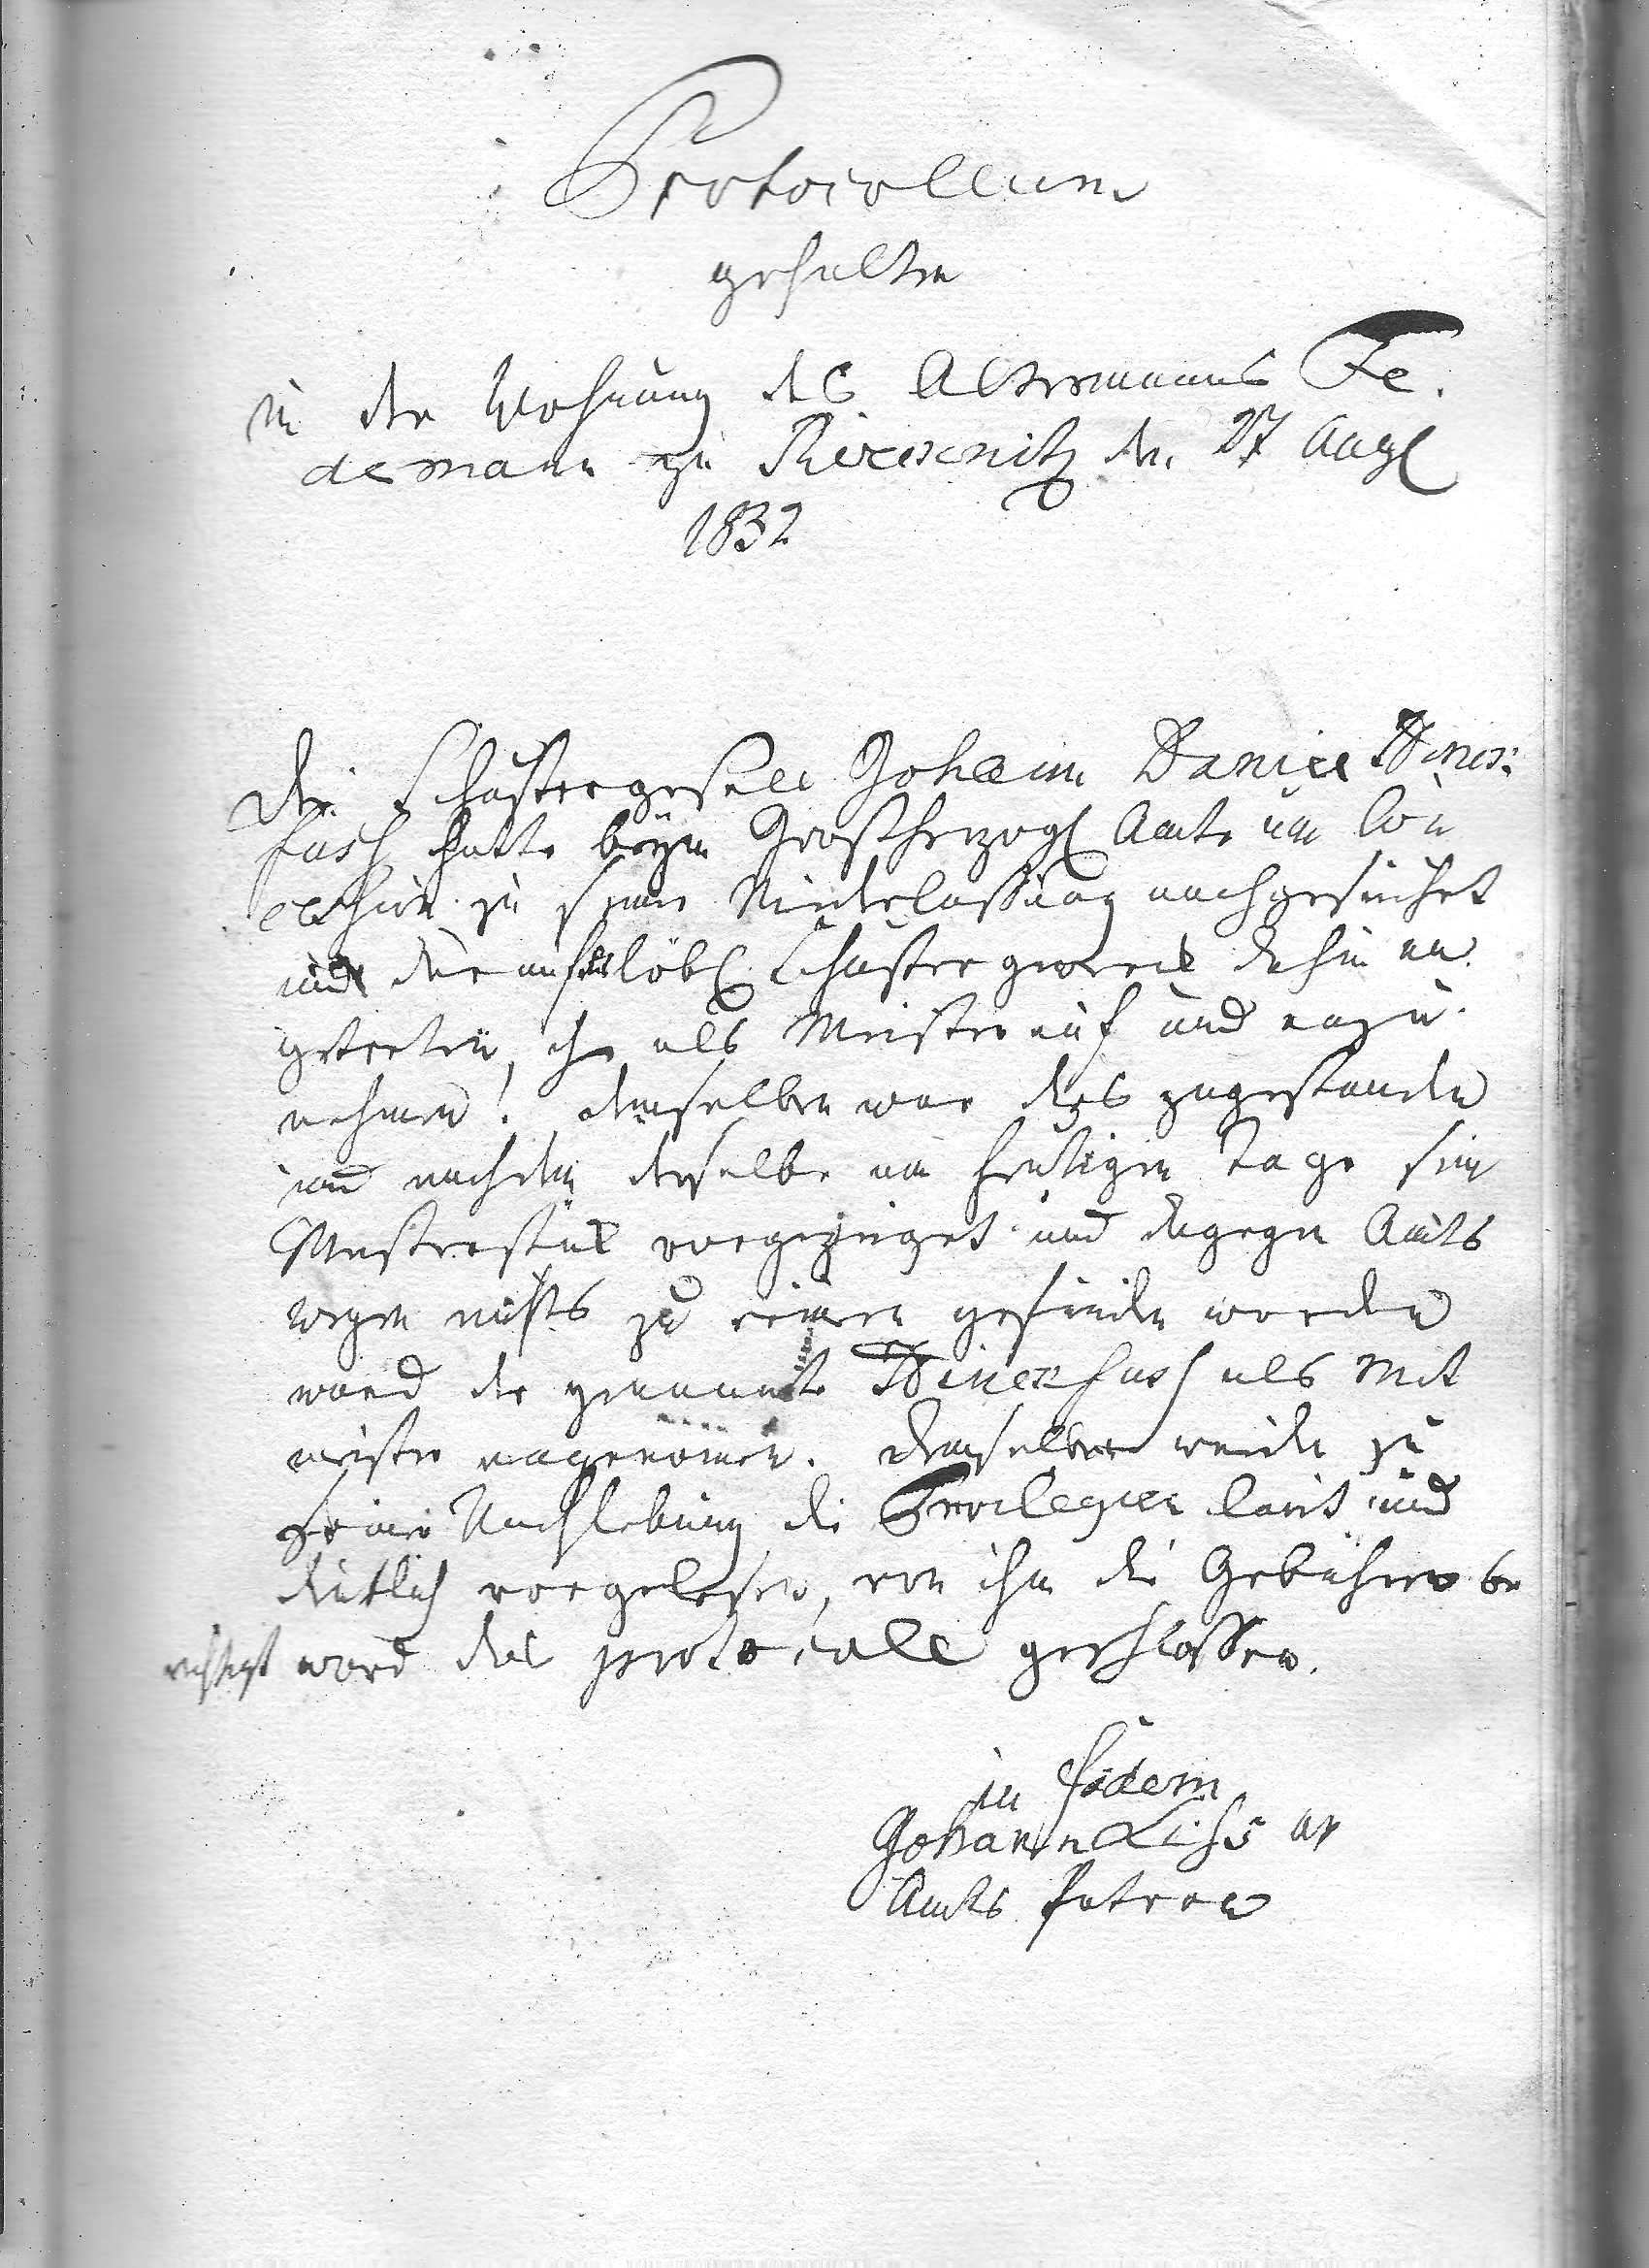 Protocollum
gehalten
in der Wohnung des Altermanns Te.
demann zu den 27 Augl
1832
Der Schustergesell Johann Daniel
fusß hatte beym Großherzogl Amte um
zu seiner Niederlassung nachgesuchet
und löbl. Schustergewerk dahin an
getreten, ihn als Meister auf und anzu
nehmen! demselben war dies zugestanden
und nachdem derselbe am heutigen Tage sein
Meisterstük vorgezeiget und dagegen Amts
wegen nichts zu erinnern gefunden worden
ward der genannte als Mit
meister angenommen. demselben wurden zu
seiner Nachlebung die Privilegien laut und
deutlich vorgelesen, von ihm die Gebühren be
richtigt ward das protocoll geschlossen.
in fidem
Johann
Amts Patron